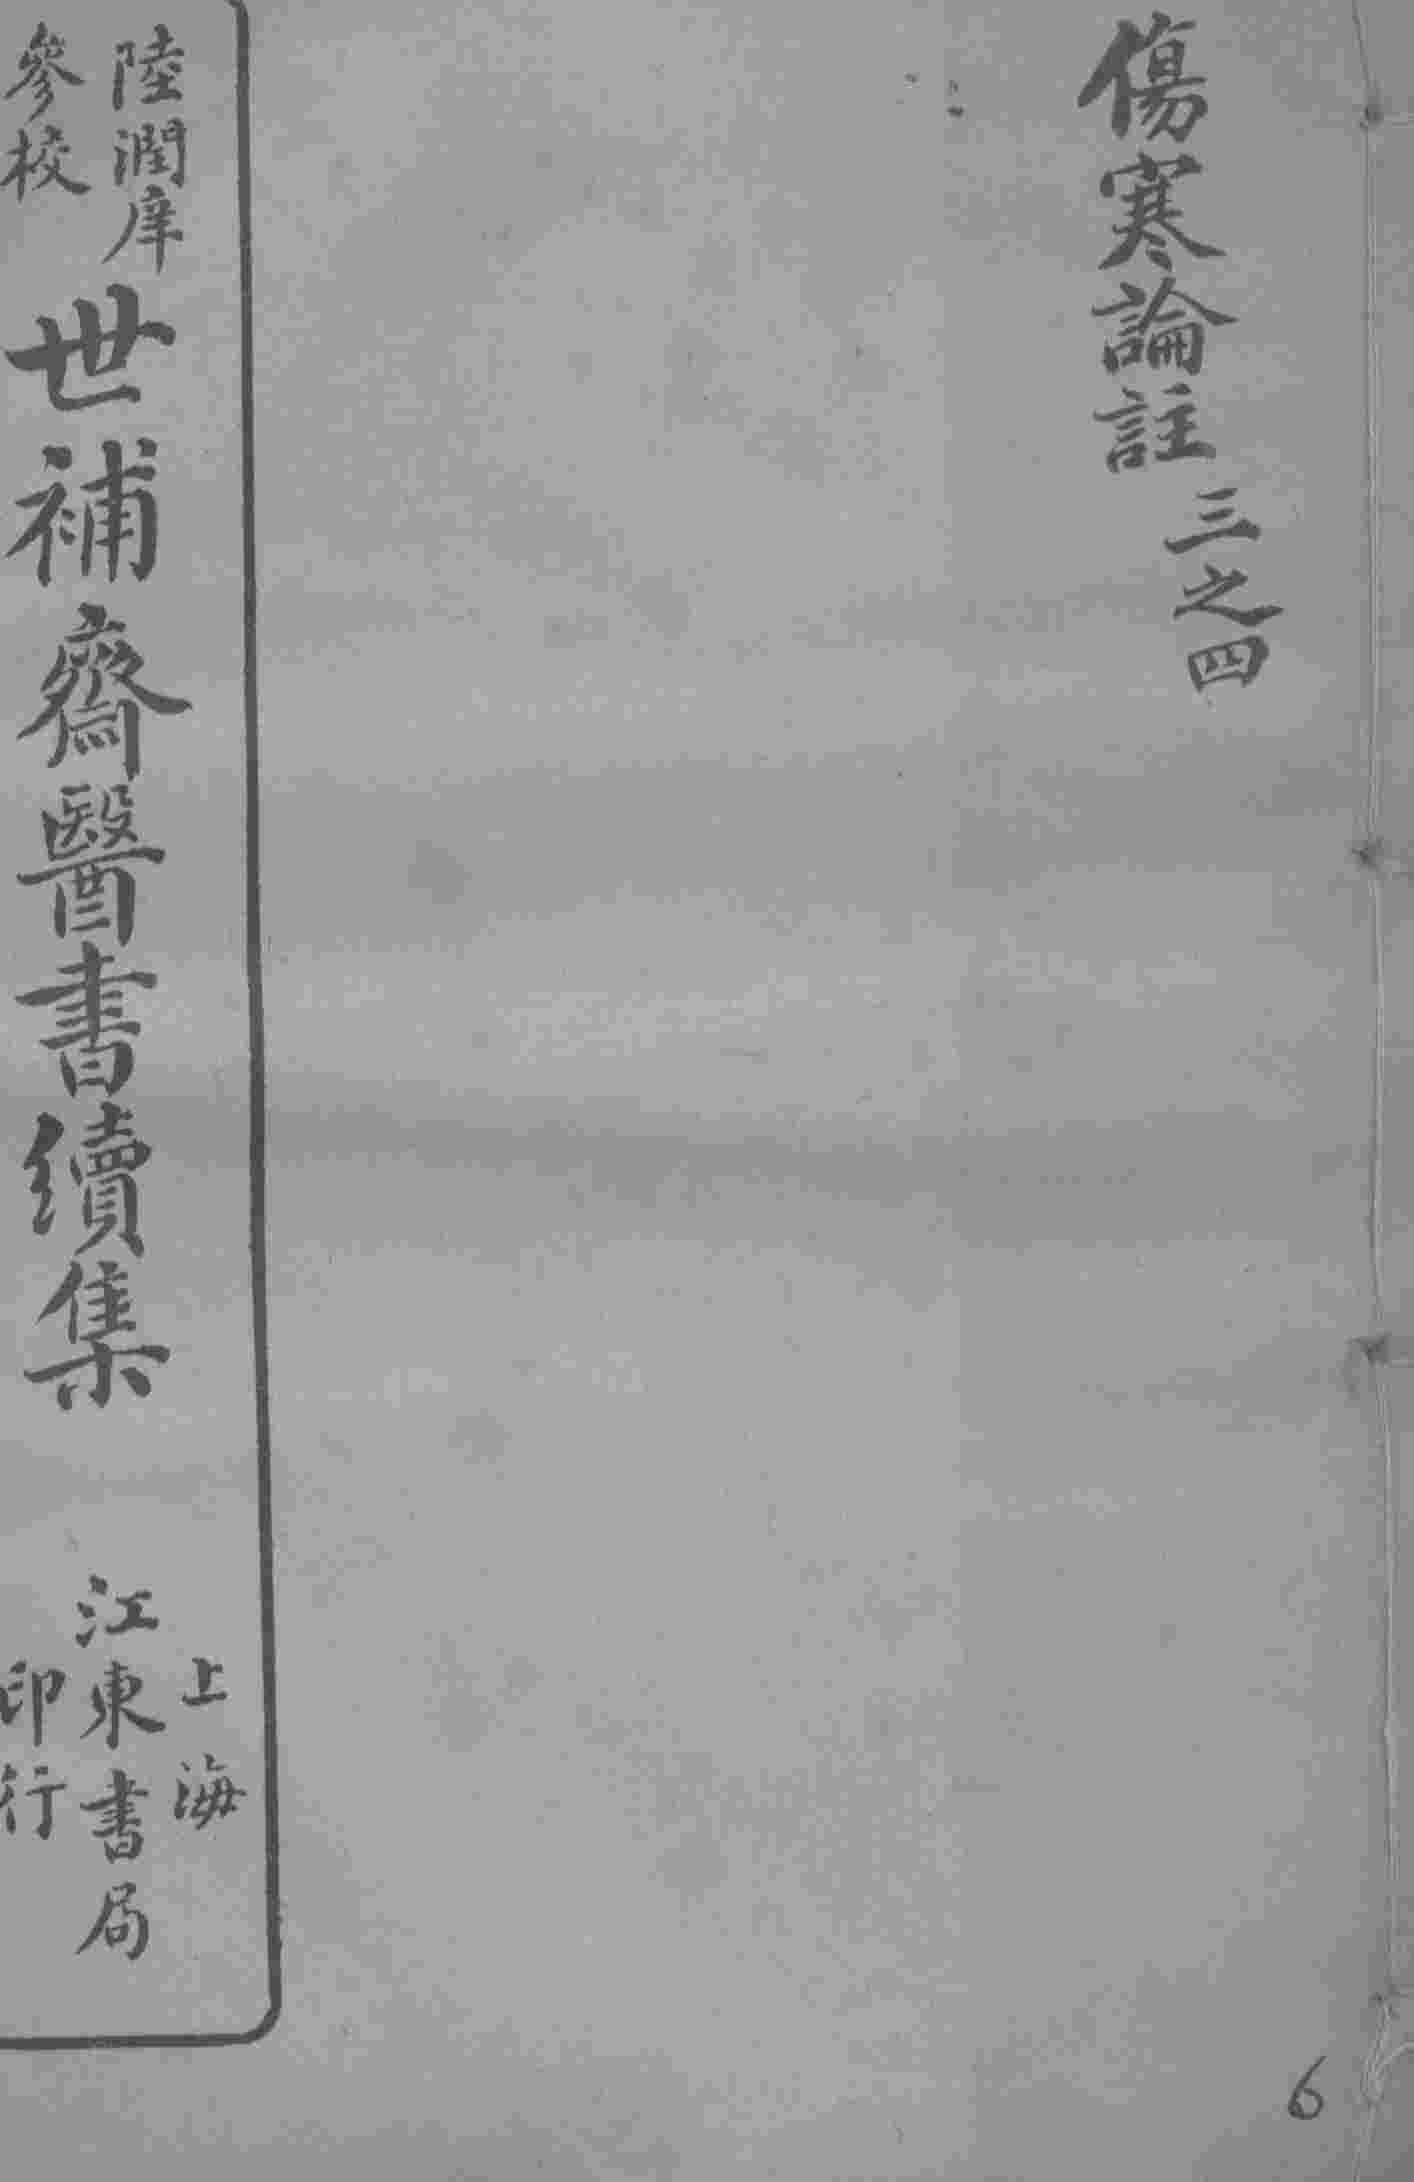 傷寒論註
三之四
陸潤庠
參校
世補齋醫書續集
上海
江東書局
印行
6